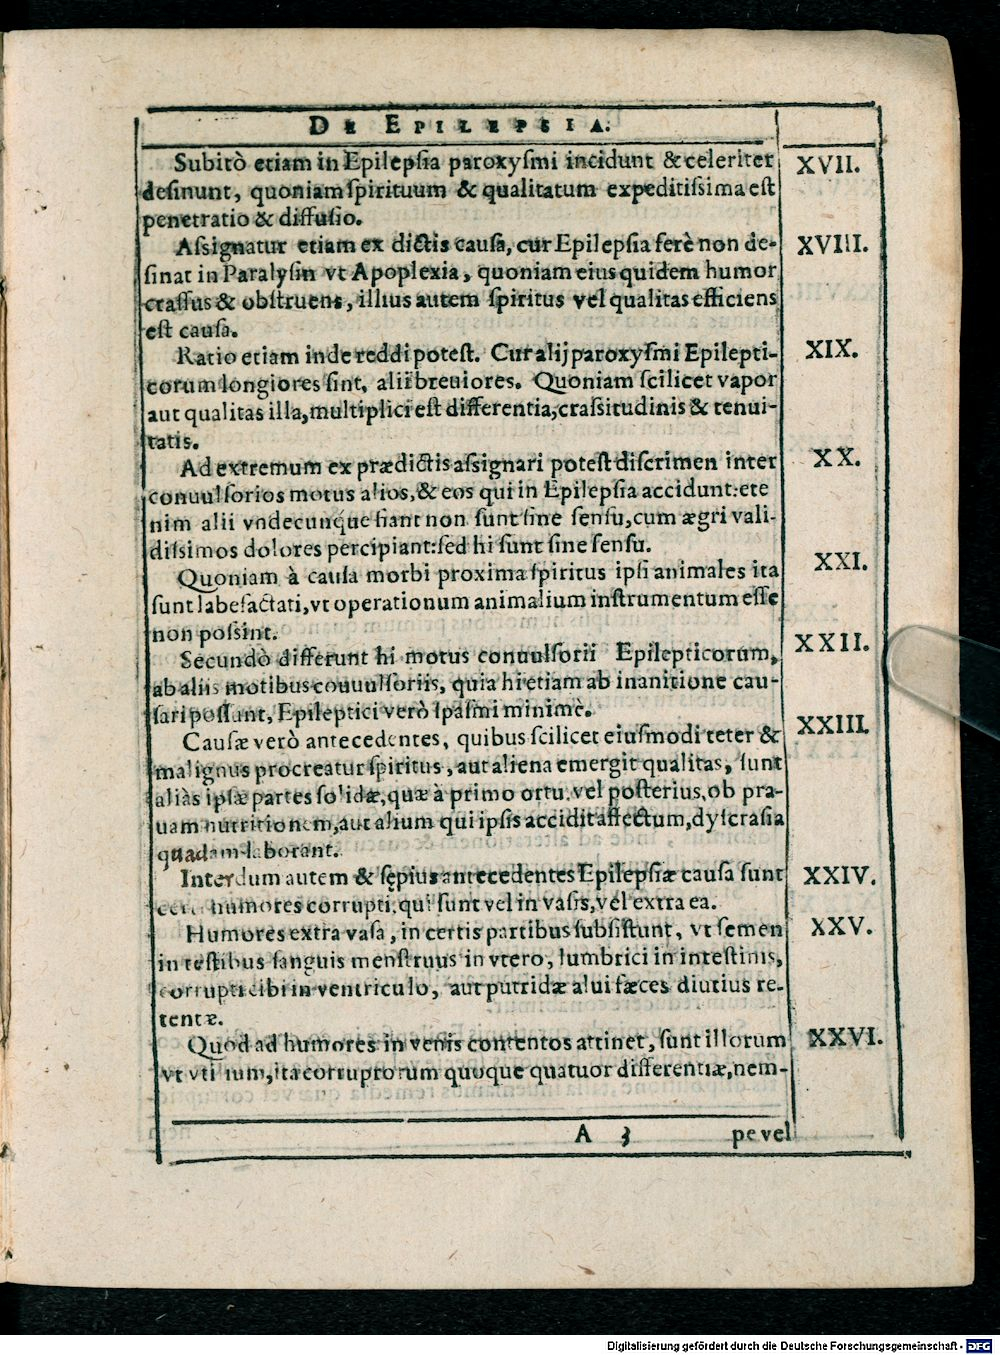 DE EPILEPSIA.
Subitò etiam in Epilepsia paroxyſmi incidunt & celeriter XVII.
deſinunt, quoniam ſpirituum & qualitatum expeditiſsima eſt
penetratio & diffuſio.
Aſsignatur etiam ex dictis cauſa, cur Epilepſia ferè non de- XVIII.
ſinat in Paralyſin vt Apoplexia, quoniam eius quidem humor
craſſus & obſtruens, illius autem ſpiritus vel qualitas efficiens
eſt cauſa.
Ratio etiam inde reddi poteſt. Cur alij paroxyſmi Epilepti- XIX.
corum longiores ſint, alii breuiores. Quoniam ſcilicet vapor
aut qualitas illa, multiplici eſt differentia, craſsitudinis & tenui-
tatis.
Ad extremum ex prædictis aſsignari poteſt diſcrimen inter XX.
conuulſorios motus alios, & eos qui in Epilepſia accidunt: ete
nim alii vndecunque fiant non ſunt ſine ſenſu, cum ægri vali-
diſsimos dolores percipiant: ſed hi ſunt ſine ſenſu.
Quoniam à cauſa morbi proxima ſpiritus ipſi animales ita XXI.
ſunt labefactati, vt operationum animalium inſtrumentum eſſe
non poſsint.
Secundò differunt hi motus conuulſorii Epilepticorum, XXII.
ab aliis motibus couuulſoriis, quia hi etiam ab inanitione cau-
ſari poſſunt, Epileptici verò ſpaſmi minimè.
Cauſæ verò antecedentes, quibus ſcilicet eiuſmodi teter & XXIII.
malignus procreatur ſpiritus, aut aliena emergit qualitas, ſunt
aliàs ipſæ partes ſolidæ, quæ à primo ortu, vel poſterius, ob pra-
uam nutritionem, aut alium qui ipſis accidit affectum, dyſcraſia
quadam laborant.
Interdum autem & ſępius antecedentes Epilepſiæ cauſa ſunt XXIV.
humores corrupti, qui ſunt vel in vaſis, vel extra ea.
Humores extra vaſa, in certis partibus ſubſiſtunt, vt ſemen XXV.
in teſtibus ſanguis menſtruus in vtero, lumbrici in inteſtinis,
corrupti cibi in ventriculo, aut putridæ alui fæces diutius re-
tentæ.
Quod ad humores in venis contentos attinet, ſunt illorum XXVI.
vt vti ium, ita corruptorum quoque quatuor differentiæ, nem-
A 3 pe vel
Digitalisierung gefördert durch die Deutsche Forschungsgemeinschaft - DFG